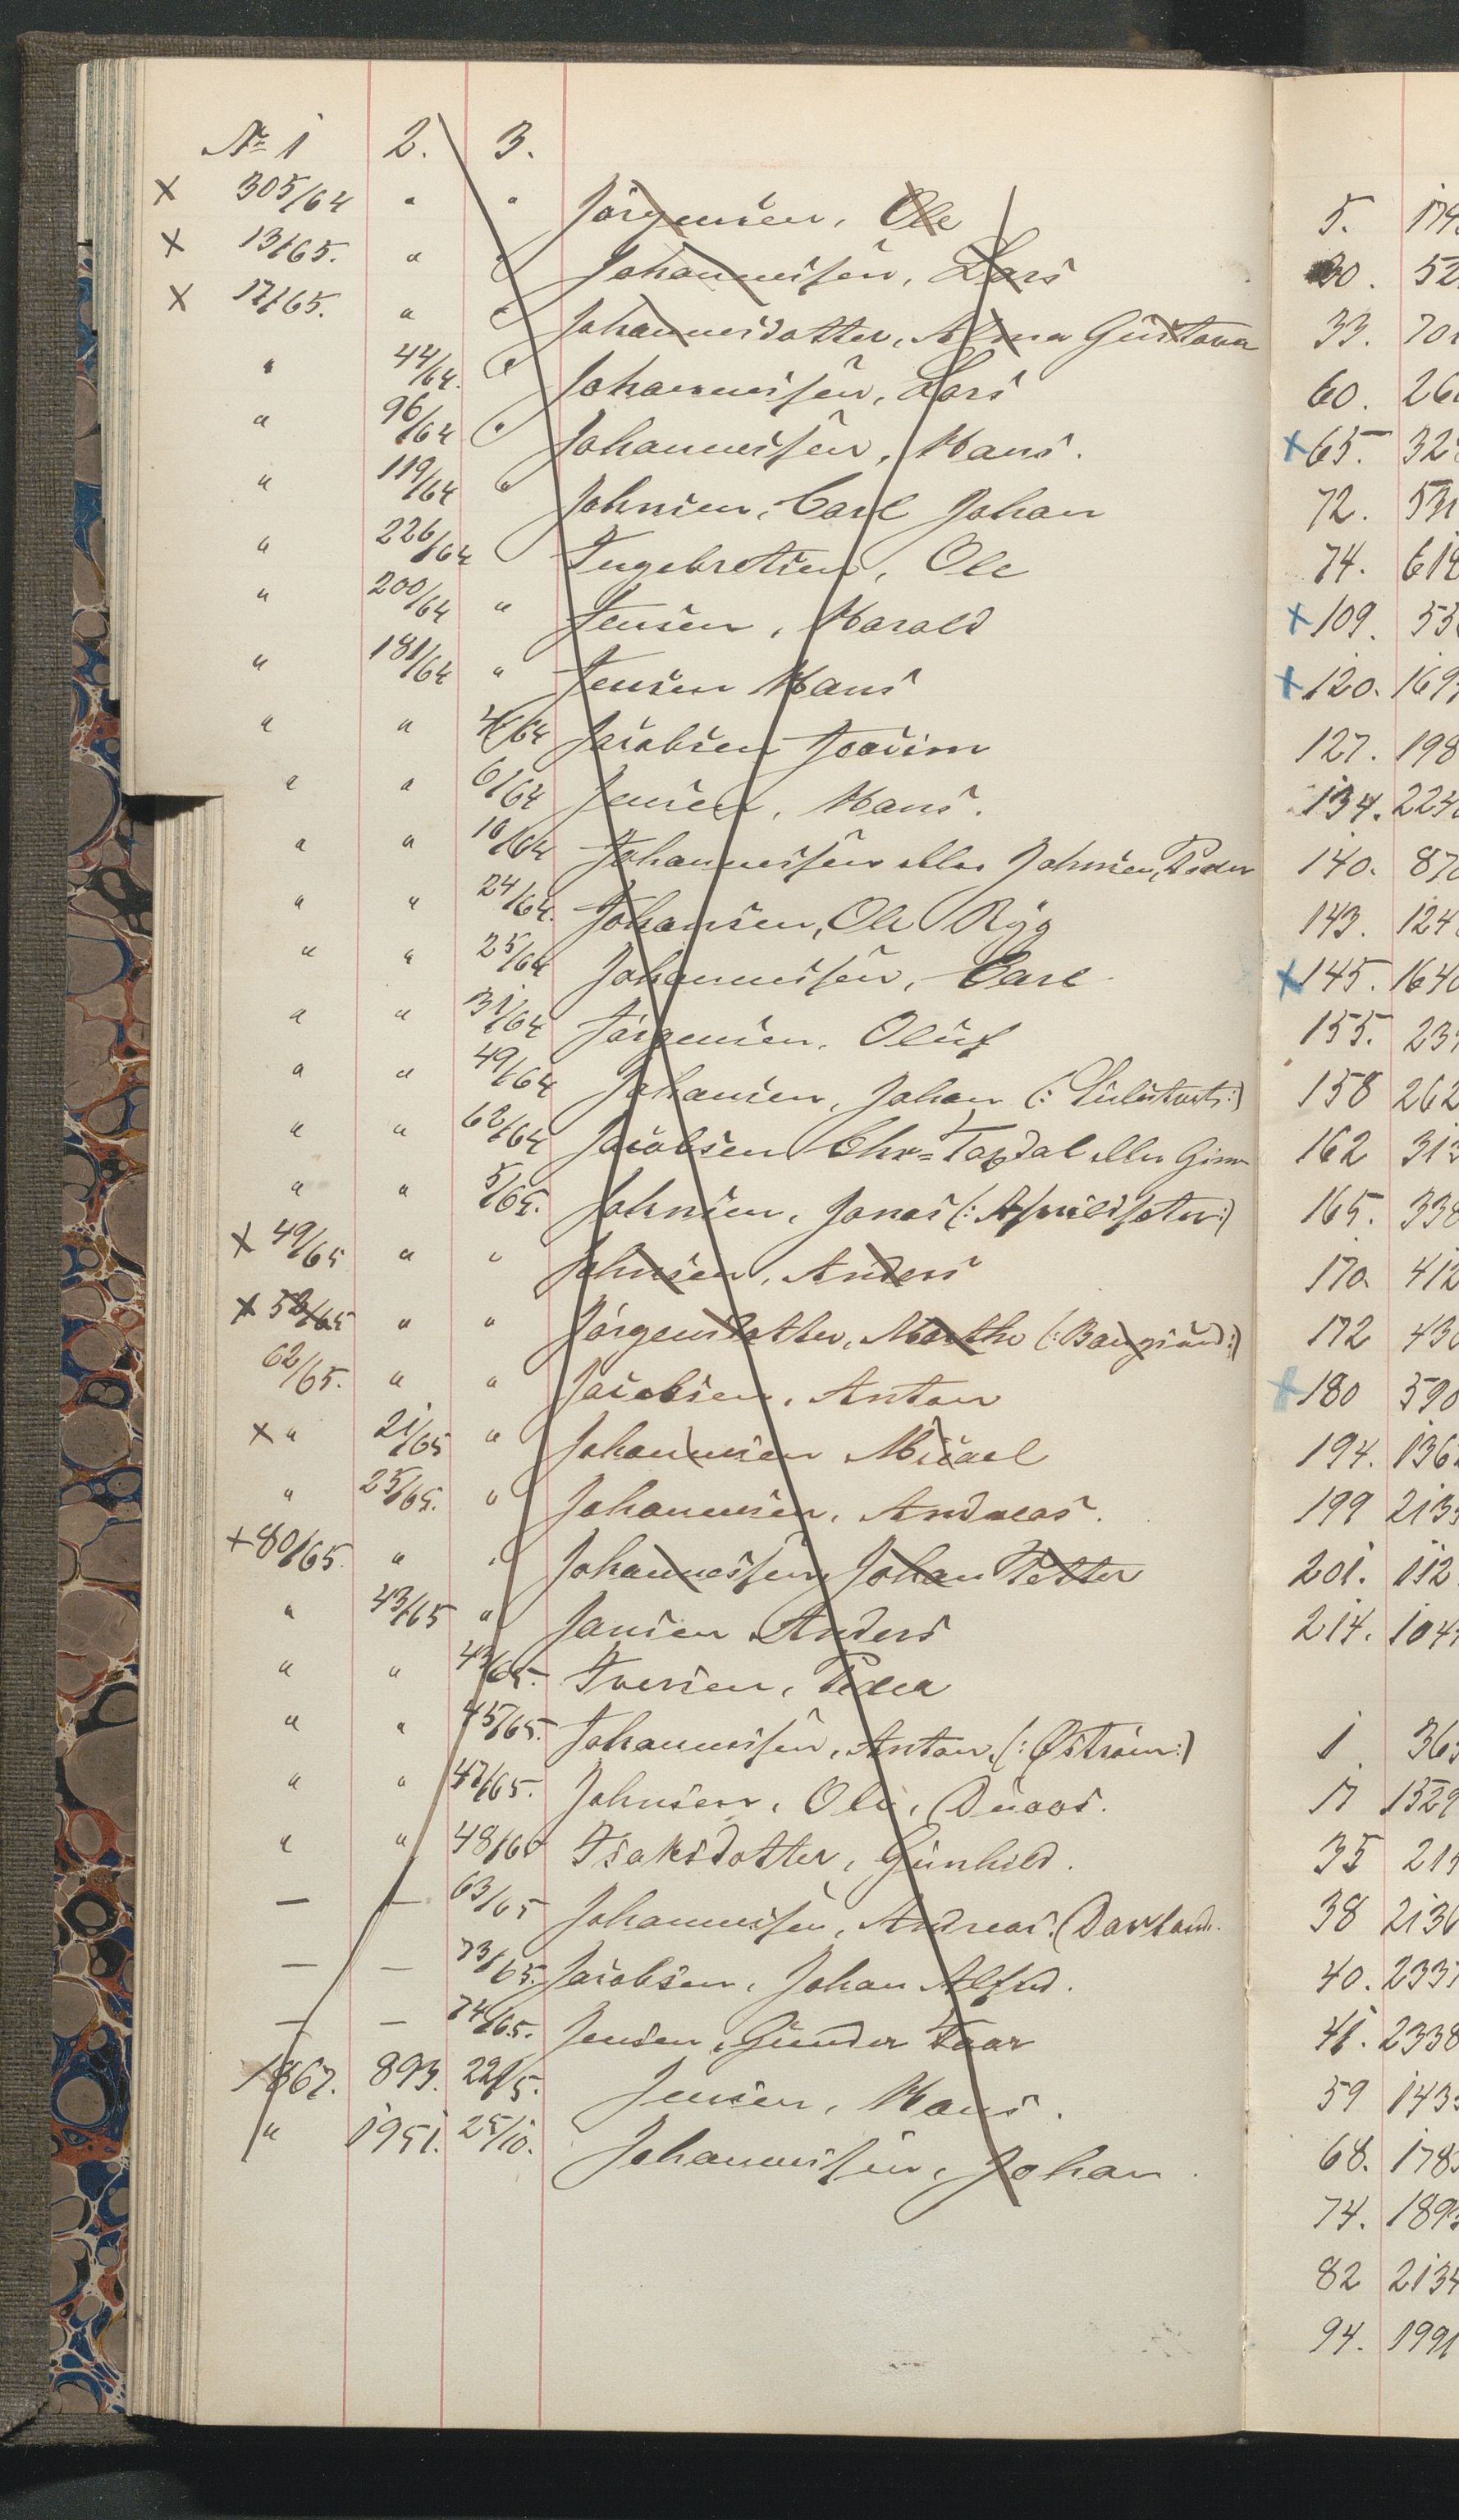 No 1 2. 3.
X 305/64 " " Jörgensen, Ole
X 13/65. " " Johannesen, Lars
X 17/65. " " Johannesdatter, Alma Gustava
" 44/64. " Johannesen, Lars
" 96/64 " Johannesen, Hans.
" 119/64 " Johnsen, Carl Johan
" 226/64 " Ingebretsen, Ole
" 200/64 " Jensen, Harald
" 181/64 " Jensen Hans
" " 4/64 Jacobsen Joacim
" " 6/64 Jensen, Hans.
" " 10/64 Johannesen eller Johnsen, Peder
" " 24/64. Johansen, Ole Ryg
" " 25/64 Johannesen, Carl
" " 31/64 Jörgensen, Oluf
" " 49/64 Johansen, Johan
" " 62/64 Jacobsen Chr= Taxdal eller
" " 5/65. Johnsen, Jonas
X 49/65 " " Johnsen, Anders
X 58/65 " " Jörgensdatter, Marthe
62/65. " " Jacobsen, Anton
X " 21/65 " Johannesen Micael
" 25/65. " Johannesen, Andreas.
+ 80/65 " " Johannesen, Johan Petter
" 43/65 " Jansen Anders
" " 43/65. Iversen, Peder
" " 45/65. Johannesen, Anton (: Øström :)
" " 47/65. Johnsen, Ole, Duaas.
" " 48/65 Isaksdatter, Gunhild.
— — 63/65 Johannesen, Andreas.
— — 73/65. Jacobsen, Johan Alfred.
— — 74/65. Jensen, Gunder Faar
1867. 893. 22/5. Jensen, Hans.
" 1951. 25/10. Johannesen, Johan.
5. 174
30. 52
33. 70
60. 26
X 65. 32
72. 53
74. 61
X 109. 53
X 120. 169
127. 198
134. 223
140. 87
143. 124
X 145. 164
155. 23
158 262
162 31
165. 33
170. 412
172 43
X 180 590
194. 136
199 213
201. 112
214. 104
1 36
17 1529
35 21
38 213
40. 233
41. 2338
59 143
68. 178
74. 189
82 213
94. 1991